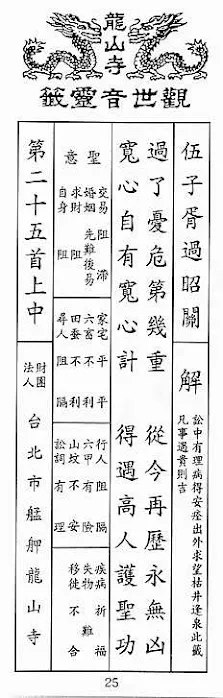 龍山寺
觀世音靈籤
伍子胥過昭關
解
訟中有理病得安痊出外求望枯井逢泉此籤
凡事遇貴則吉
過了憂危第幾重 從今再歷永無凶
寬心自有寬心計 得遇高人護聖功
聖意
交易 阻滯
婚姻 先難後易
求財 阻
自身 阻
家宅 不平
六畜 不平
田蚕 不利
尋人 阻隔
行人 阻隔
六甲 有險
山坟 不安
訟詞 有理
疾病 祈福
失物 難
移徙 不合
第二十五首上中
財團
法人
台北市艋舺龍山寺
25